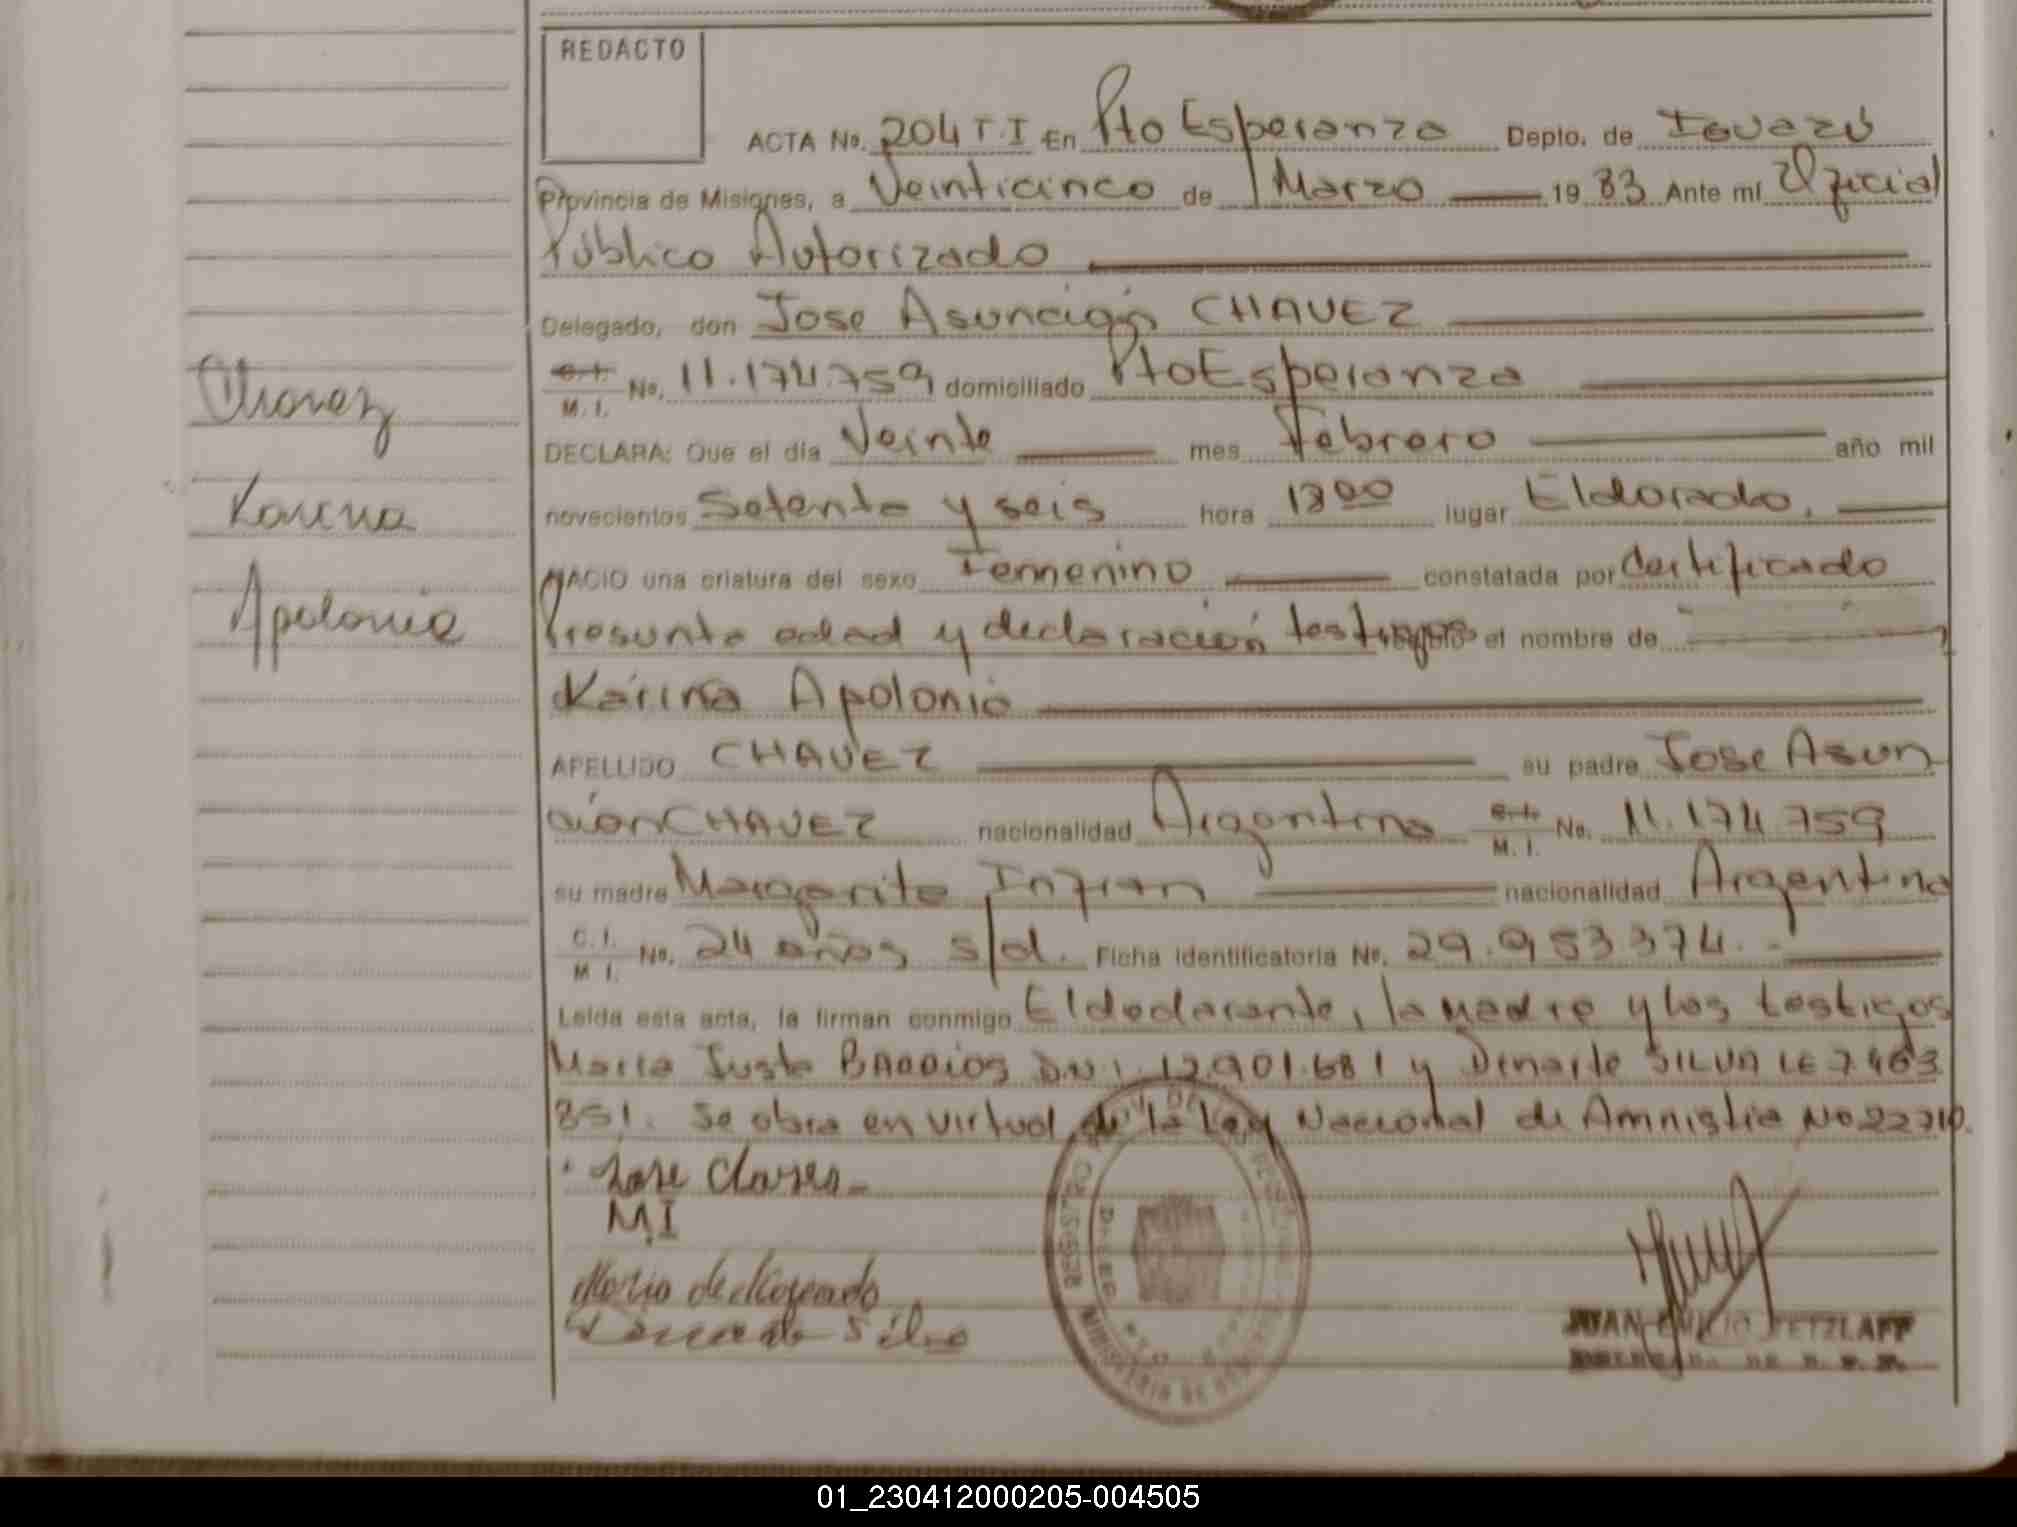 REDACTO
ACTA No. 204 T.I En Pto Esperanza Depto. de Iguazú
Provincia de Misiones, a Veinticinco de Marzo 1983 Ante mí Oficial
Público Autorizado
Delegado, don Jose Asunción CHAVEZ
C.I. M.I. No. 11.174.759 domiciliado Pto Esperanza
Chavez
DECLARA: Que el día Veinte mes Febrero año mil
novecientos Setenta y seis hora 1800 lugar Eldorado.
Karina
NACIO una criatura del sexo Femenino constatada por Certificado
Apolonia
Presunta edad y declaración testigos el nombre de
Karina Apolonia
APELLIDO CHAVEZ su padre Jose Asun
ción CHAVEZ nacionalidad Argentina C.I. M.I. No. 11.174.759
su madre Margarita Infran nacionalidad Argentina
C.I. M.I. No. 24 años s/d. Ficha identificatoria No. 29.953374.-
Leída esta acta, la firman conmigo El declarante, la madre y los testigos
Maria Justa BARRIOS D.N.I. 12.901.681 y Dinarte SILVA LE 7.463
851. Se obra en virtud de la Ley Nacional de Amnistia No 22710.
Jose Claves
M.I
Maria de
Silva
JUAN PETZLAFF
01_230412000205-004505